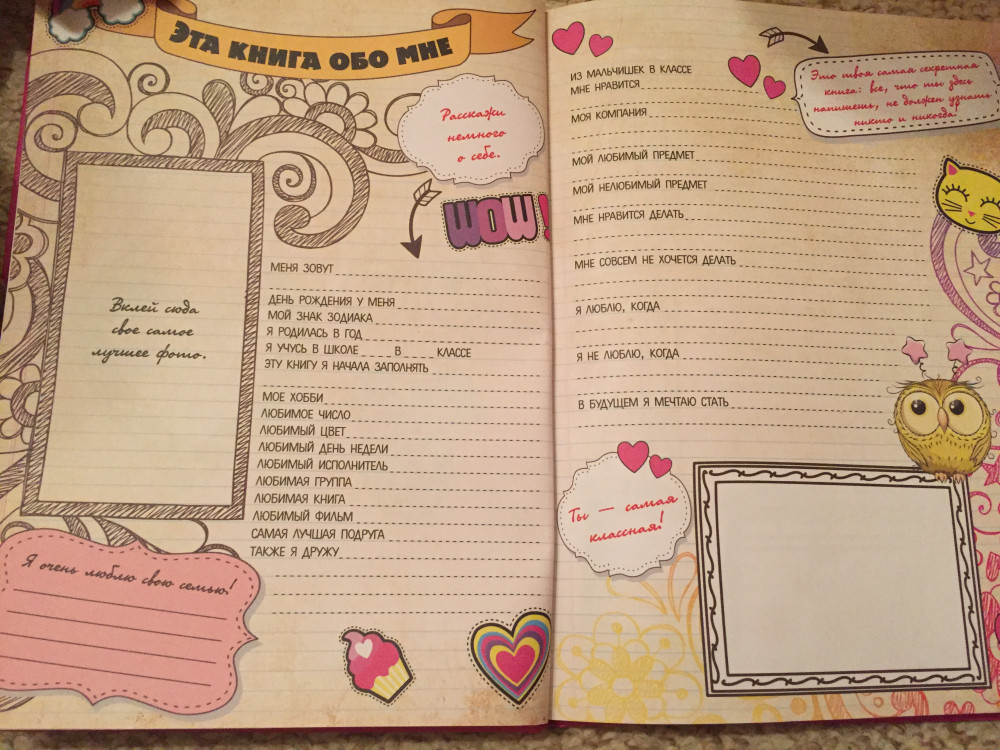 ЭТА КНИГА ОБО МНЕ
Расскажи
немного
о себе.
WOW!
Вклей сюда
свое самое
лучшее фото.
МЕНЯ ЗОВУТ
ДЕНЬ РОЖДЕНИЯ У МЕНЯ
МОЙ ЗНАК ЗОДИАКА
Я РОДИЛАСЬ В ГОД
Я УЧУСЬ В ШКОЛЕ В КЛАССЕ
ЭТУ КНИГУ Я НАЧАЛА ЗАПОЛНЯТЬ
МОЕ ХОББИ
ЛЮБИМОЕ ЧИСЛО
ЛЮБИМЫЙ ЦВЕТ
ЛЮБИМЫЙ ДЕНЬ НЕДЕЛИ
ЛЮБИМЫЙ ИСПОЛНИТЕЛЬ
ЛЮБИМАЯ ГРУППА
ЛЮБИМАЯ КНИГА
ЛЮБИМЫЙ ФИЛЬМ
САМАЯ ЛУЧШАЯ ПОДРУГА
ТАКЖЕ Я ДРУЖУ
Я очень люблю свою семью!
ИЗ МАЛЬЧИШЕК В КЛАССЕ
МНЕ НРАВИТСЯ
МОЯ КОМПАНИЯ
Это твоя самая секретная
книга: все, что ты здесь
напишешь, не должен узнать
никто и никогда!
МОЙ ЛЮБИМЫЙ ПРЕДМЕТ
МОЙ НЕЛЮБИМЫЙ ПРЕДМЕТ
МНЕ НРАВИТСЯ ДЕЛАТЬ
МНЕ СОВСЕМ НЕ ХОЧЕТСЯ ДЕЛАТЬ
Я ЛЮБЛЮ, КОГДА
Я НЕ ЛЮБЛЮ, КОГДА
В БУДУЩЕМ Я МЕЧТАЮ СТАТЬ
Ты — самая
классная!